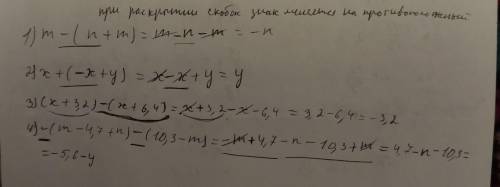 при раскрытии скобок знак меняется на противоположный
1) m - (n + m) = m - n - m = -n
2) x + (-x + y) = x - x + y = y
3) (x + 3,2) - (x + 6,4) = x + 3,2 - x - 6,4 = 3,2 - 6,4 = -3,2
4) - (m - 4,7 + n) - (10,3 - m) = -m + 4,7 - n - 10,3 + m = 4,7 - n - 10,3 =
= -5,6 - y